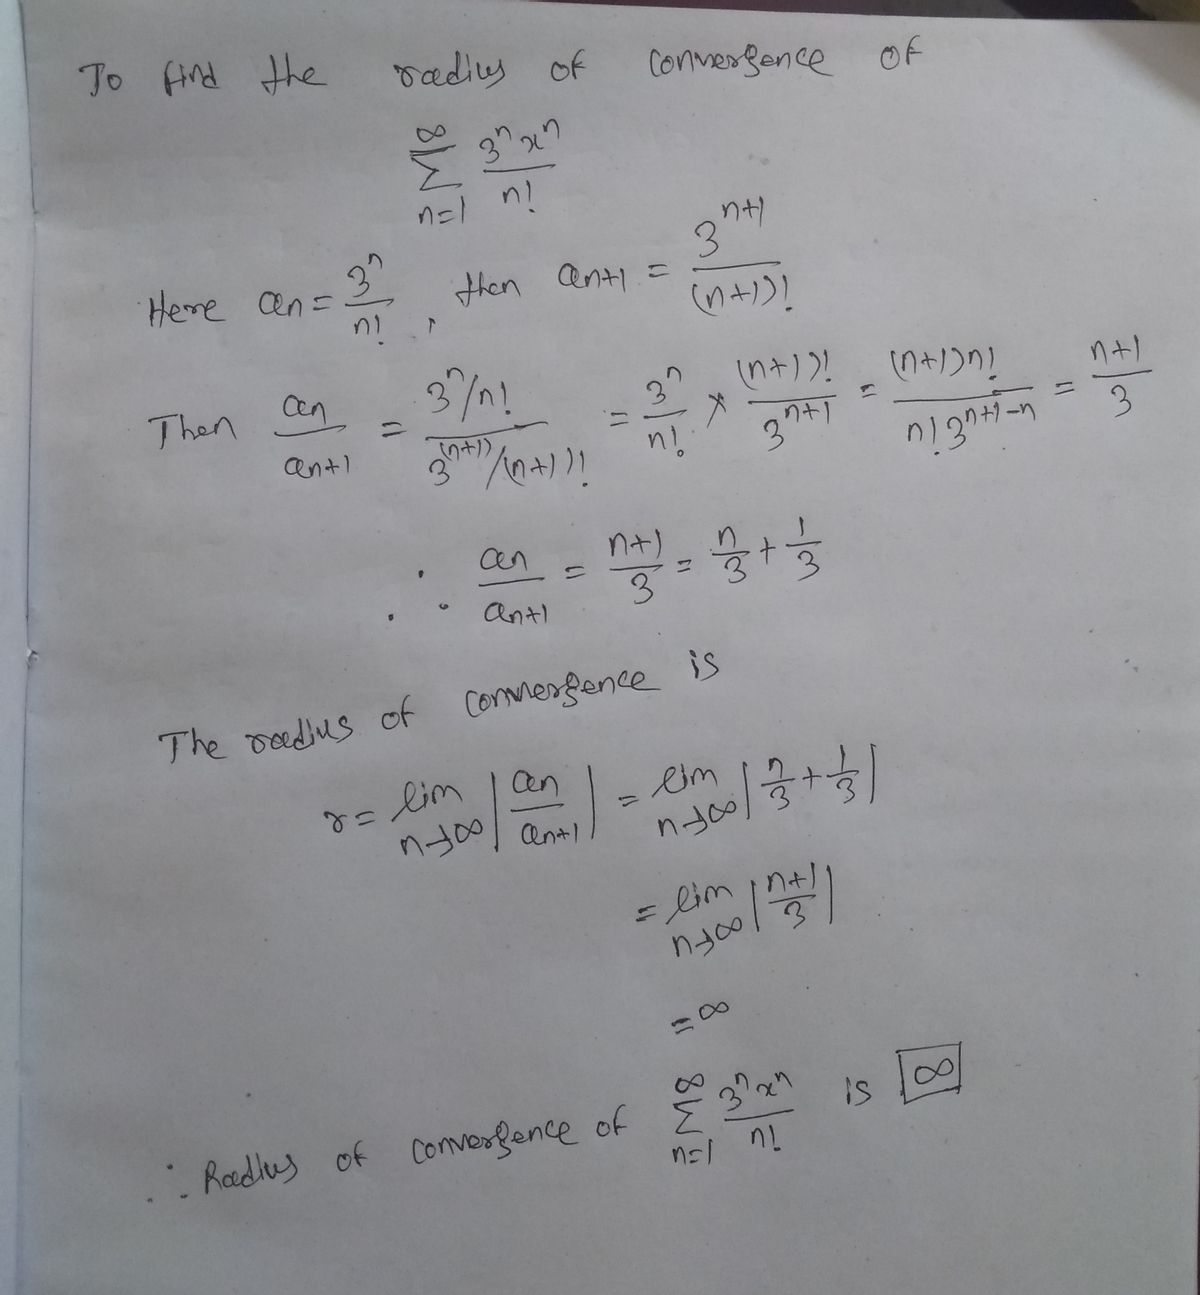 To find the radius of convergence of
∞
Σ 3ⁿxⁿ/n!
n=1
Here an = 3ⁿ/n! , then an+1 = 3ⁿ⁺¹/(n+1)!
Then an/an+1 = (3ⁿ/n!)/(3⁽ⁿ⁺¹⁾/(n+1)!) = 3ⁿ/n! × (n+1)!/3ⁿ⁺¹ = (n+1)n!/n!3ⁿ⁺¹⁻ⁿ = n+1/3
∴ an/an+1 = n+1/3 = n/3 + 1/3
The radius of convergence is
r = lim n→∞ |an/an+1| = lim n→∞ |n/3 + 1/3|
= lim n→∞ |n+1/3|
= ∞
∴ Radius of convergence of ∞ Σ n=1 3ⁿxⁿ/n! is ∞